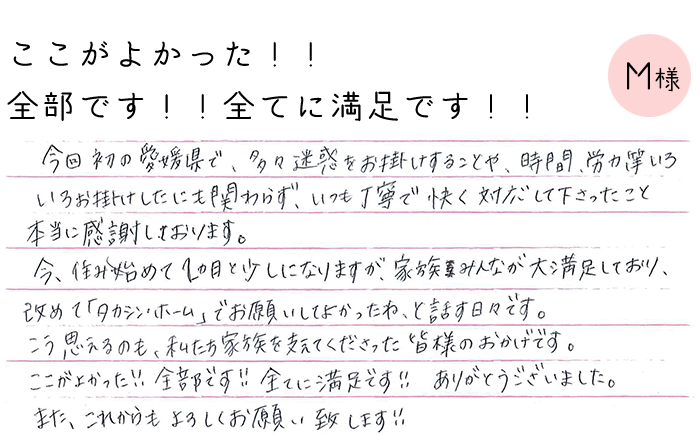 ここがよかった！！
全部です！！全てに満足です！！
M様
今回初の愛媛県で、多々迷惑をお掛けすることや、時間、労力等いろ
いろお掛けしたにも関わらず、いつも丁寧で快く対応して下さったこと
本当に感謝しております。
今、住み始めて1カ月と少しになりますが、家族みんなが大満足しており、
改めて「タカシン・ホーム」でお願いしてよかったね、と話す日々です。
こう思えるのも、私たち家族を支えてくださった皆様のおかげです。
ここがよかった!! 全部です!! 全てに満足です!! ありがとうございました。
また、これからもよろしくお願い致します!!